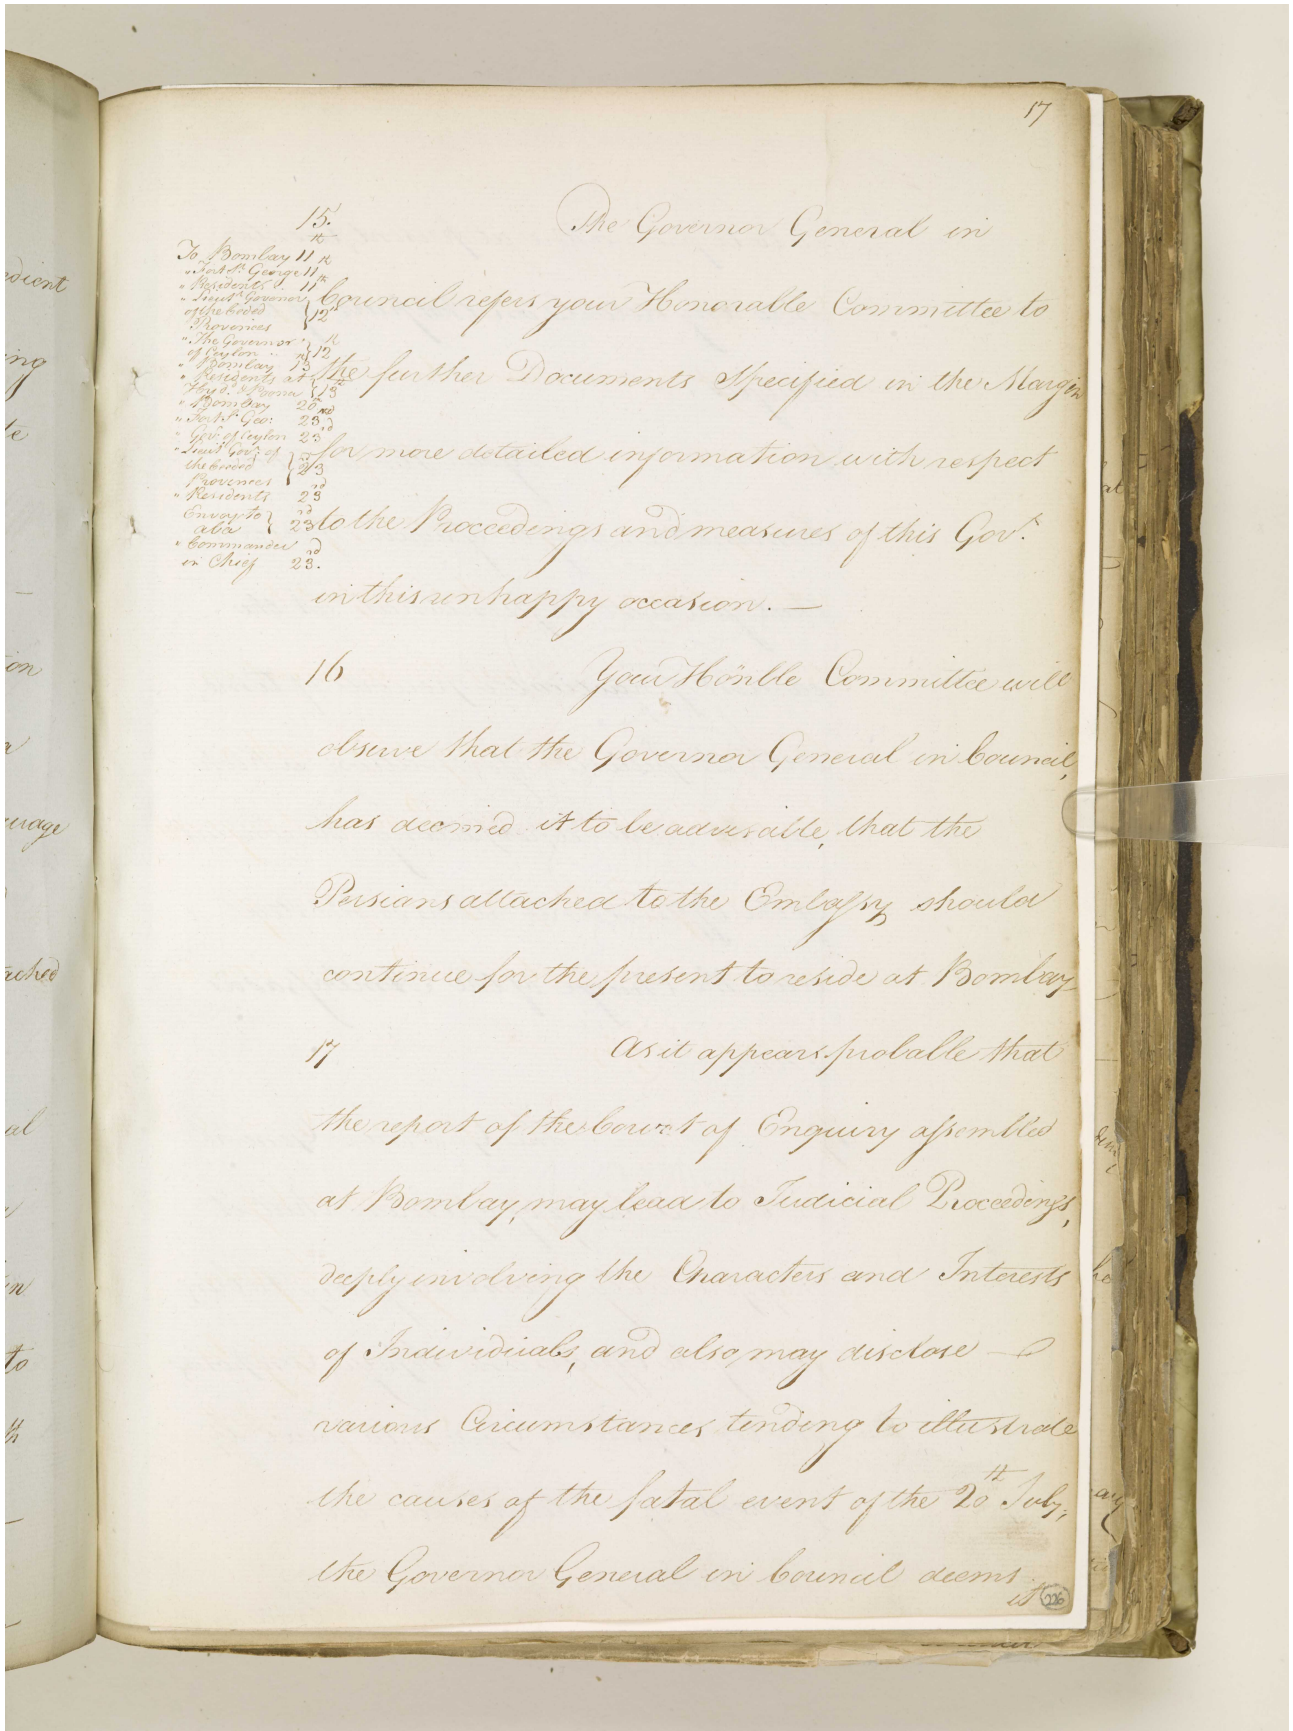 17
15.
The Governor General in
To Bombay 11th
" Fort St. George 11th
" Residents 11th
" Lieutt. Governor
of the Ceded
Provinces } 12
" The Governor
of Ceylon } 12th
" Bombay 13th
" Residents at
Hyd. & Poona } 13th
" Bombay 20th
" Fort St. Geo: 23rd
" Govr. of Ceylon 23rd
" Lieut Govr. of
the Ceded
Provinces } 23rd
" Residents 23rd
Envoy to
Ava } 23rd
" Commander
in Chief 23rd.
Council refers your Honorable Committee to
the further Documents Specified in the Margin
for more detailed information with respect
to the Proceedings and measures of this Govt.
in this unhappy occasion. —
16 Your Honble Committee will
observe that the Governor General in Council,
has deemed it to be advisable, that the
Persians attached to the Embassy should
continue for the present to reside at Bombay
17 As it appears probable that
the report of the Court of Enquiry assembled
at Bombay, may lead to Judicial Proceedings,
deeply involving the Characters and Interests
of Individuals, and also may disclose —
various Circumstances, tending to illustrate
the causes of the fatal event of the 20th July,
the Governor General in Council deems
it
226
edient
ing
te
ion
urage
ached
al
in
to
th